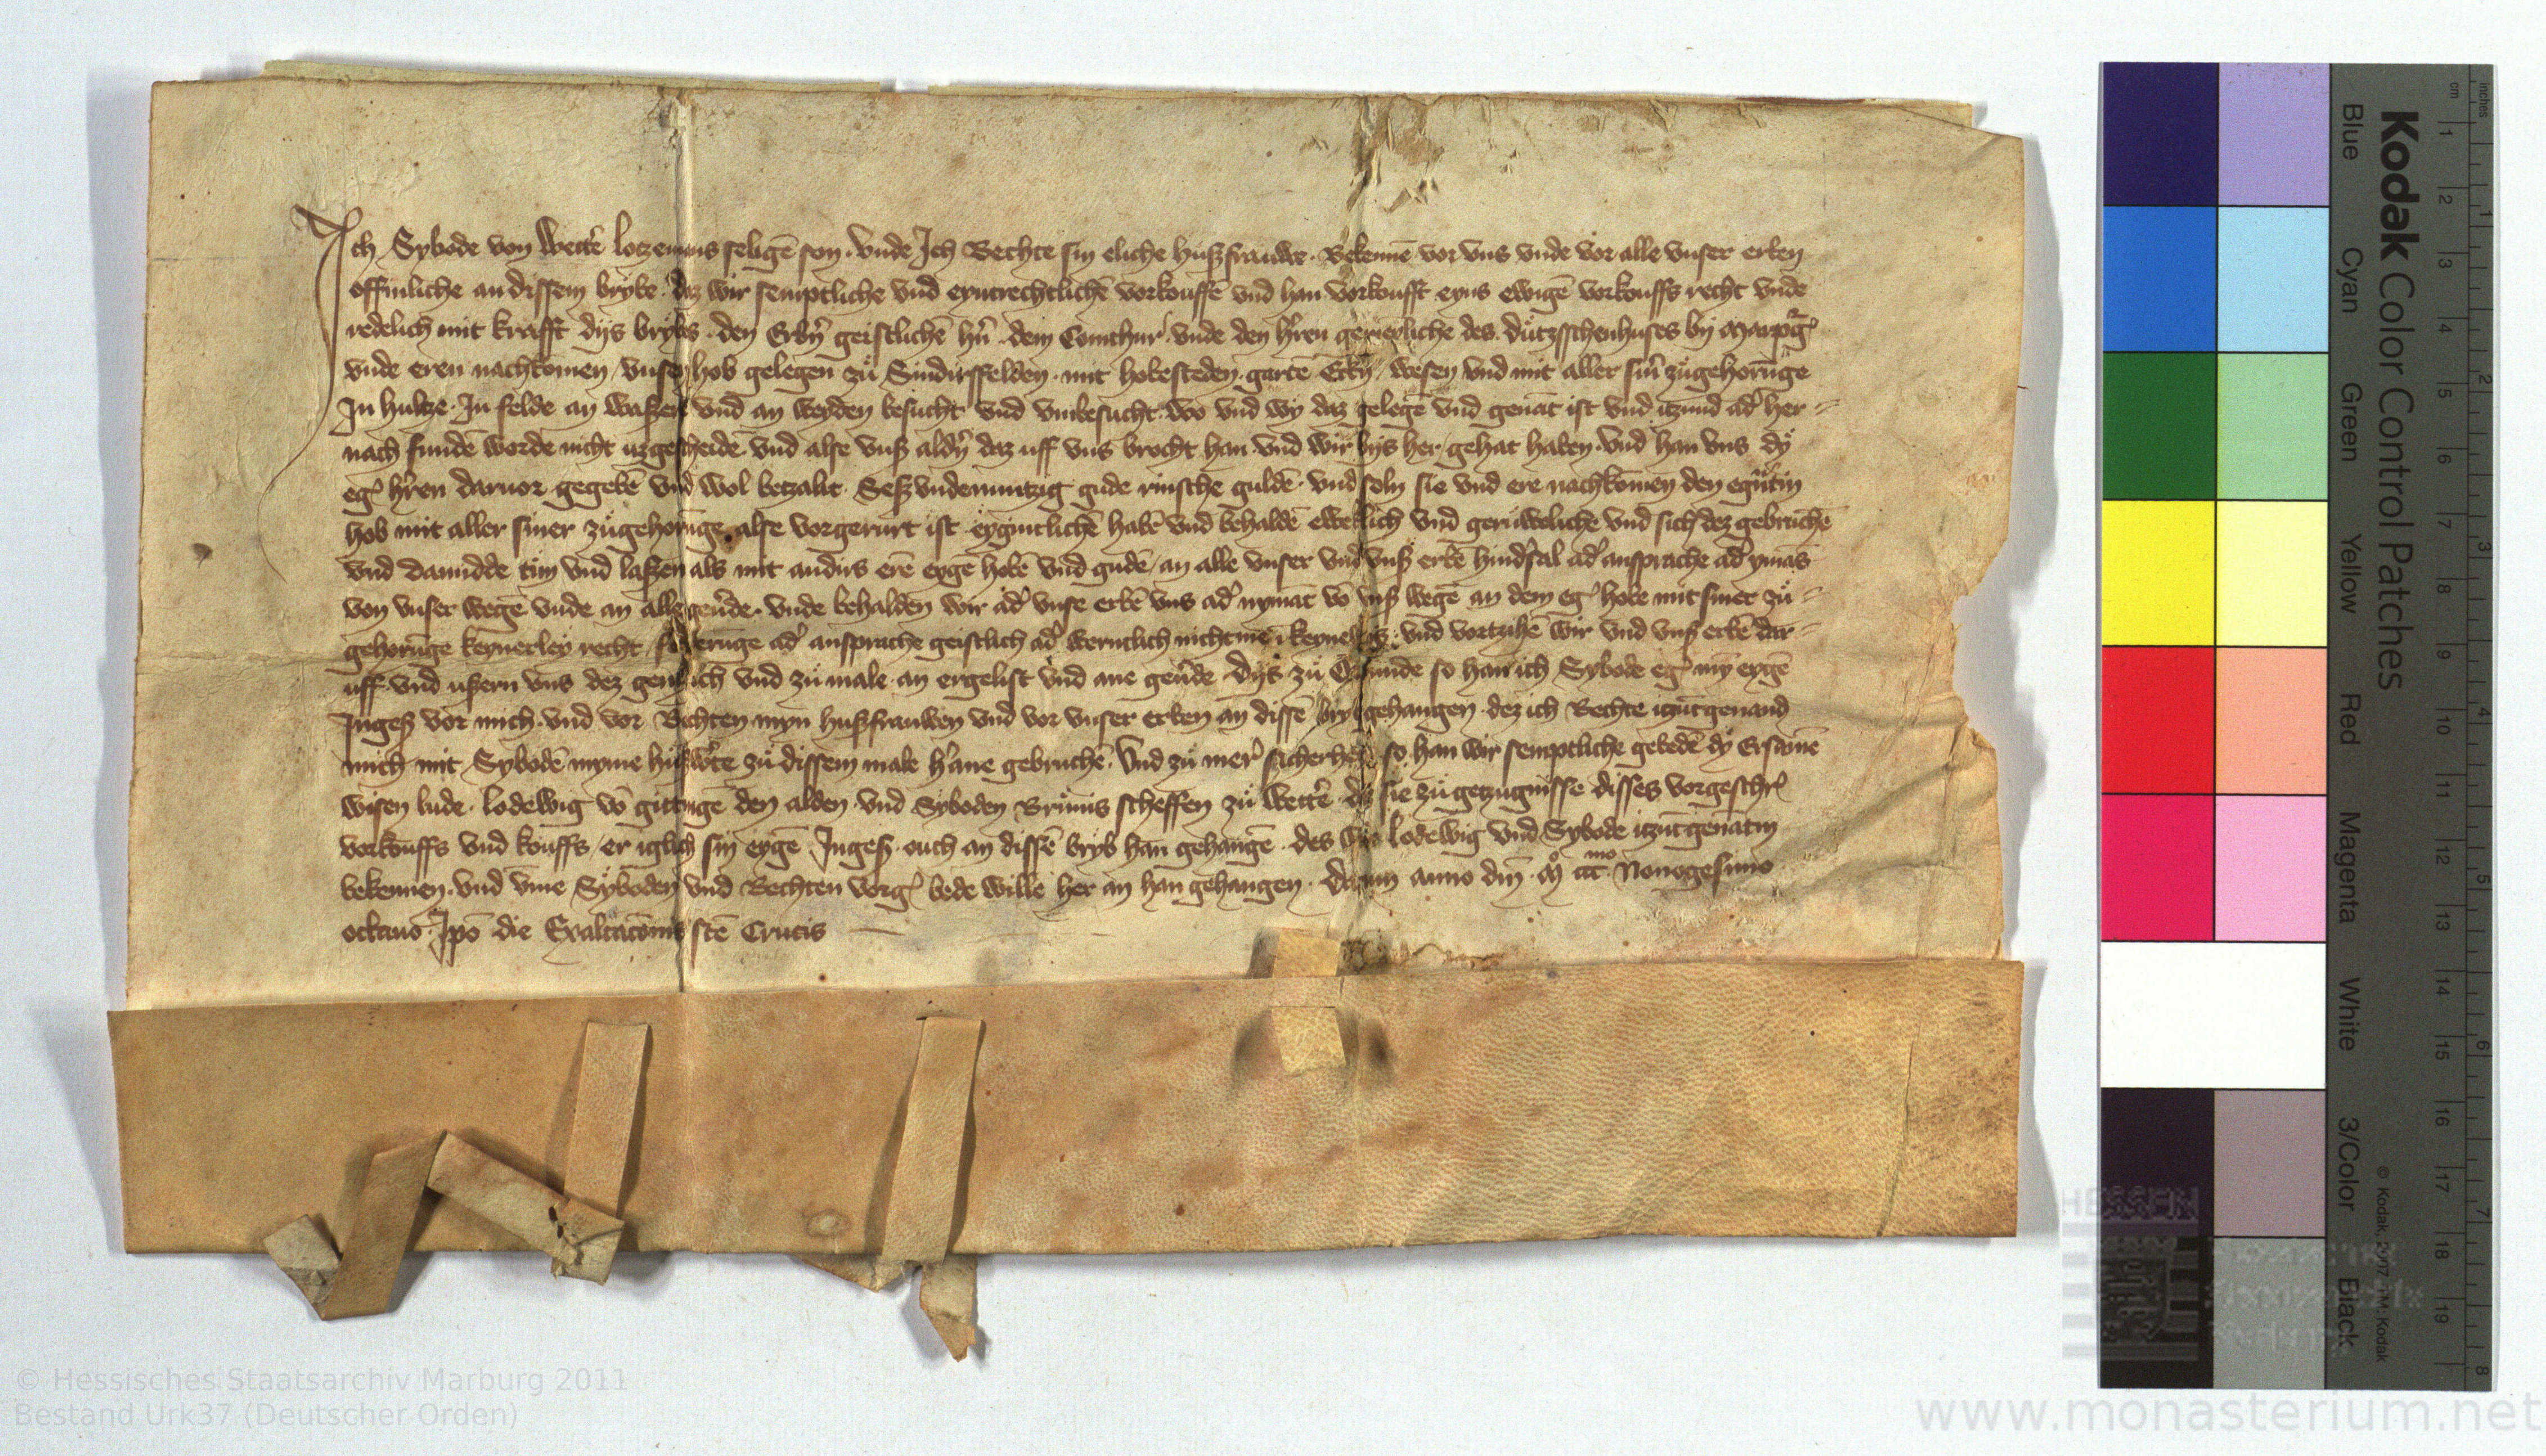 Ich Sybode von Wettˀe lotzemans seligē son. vnde Ich Bechte sin eliche hußfrauwe. Bekennē vor vns vnde vor alle vnser erben
offinliche an dissem brybe. daz wir semptliche vnd eyntrechtlichē vorkouffē vnd han vorkoufft eyns ewigē vorkouffs recht vnde
redelich mit krafft dys brybes. den Erbˀn geistlichē hˀn dem Comthur vnde den hˀren gemeynliche des dutzsschenhuses by Marpˀg
vnde eren nachkomen, vnsen hob gelegen zů Sindirffelden. mit hobesteden. gartē Eckˀn, wesen vnd mit aller sinˀ zůgehorūge
In hultze. In felde an waßern vnd an weyden besucht vnd vmbesucht. wo vnd wy daz gelegē vnd genāt ist vnd itzund adˀ her-
nach fundē worde nicht uzgescheidē vnd alse vnß aldˀn daz uff vns brocht han vnd wir bys her gehat haben. vnd han vns dy
egˀ hˀren daruor gegebē vnd wol betzalit. Seß vndenuntzig gude rinsche guldē. vnd soln sie vnd ere nachkomen den egn̄tin
hob mit aller siner zůgehorūge alse vorgerurt ist eygintlichē habē vnd behaldē eweclich vnd geruwelichē vnd sich dez gebruchē
vnd damidde tun vnd laßen als mit andirs erē eygē hobē vnd gudē, an alle vnser vnd vnß erbē hindˀsal adˀ ansprache adˀ ymās
von vnser wegē vnde an alle geuˀde. vnde behalden wir adˀ vnse erbē vns adˀ nymāt vō vnß wegē an dem egˀ hobe mit siner zů-
gehorūge keynerley recht, forderūge adˀ ansprache geistlich adˀ werntlich nicht me ī keynewiß. vnd vortzihē wir vnd vnß erbē dar-
uff vnd ußern vns dez gentzlich vnd zů male an ergelist vnd ane geuˀde Dys zů Orkunde so han ich Sybode egˀ mȳ eygē
Ingeß vor mich. vnd vor Bechten myn hußfrauwen vnd vor vnser erben an dissē bryb gehangen. dez ich Bechte itzūtgenand
mich mit Sybodē myme hußwˀte zů dissem male hˀane gebruchē. Vnd zů merˀ sicherheit so han wir semptliche gebedē dy Ersamē
wisen lude. lodewig vō gittingē den alden vnd Syboden Brůnis scheffen zů Wettˀe. daz sie zů getzugnisse disses vorgeschrˀ
vorkouffs vnd kouffs, er iglich sin eygē Ingeß. ouch an dissē bryb han gehangē. des wir lodewig vnd Sybode itzūtgenātin
bekennen. vnd vme Syboden vnd Bechten vorgˀ bede wille her an han gehangen. Datum anno dm̄ Mº ccc mo Nonogesimo
octauo. Ipō die Exaltacōnis scē Crucis
© Hessisches Staatsarchiv Marburg 2011
Bestand Urk37 (Deutscher Orden)
www.monasterium.net
Kodak Color Control Patches
Blue Cyan Green Yellow Red Magenta White 3/Color Black
inches 1 2 3 4 5 6 7 8
cm 1 2 3 4 5 6 7 8 9 10 11 12 13 14 15 16 17 18 19
HESSEN